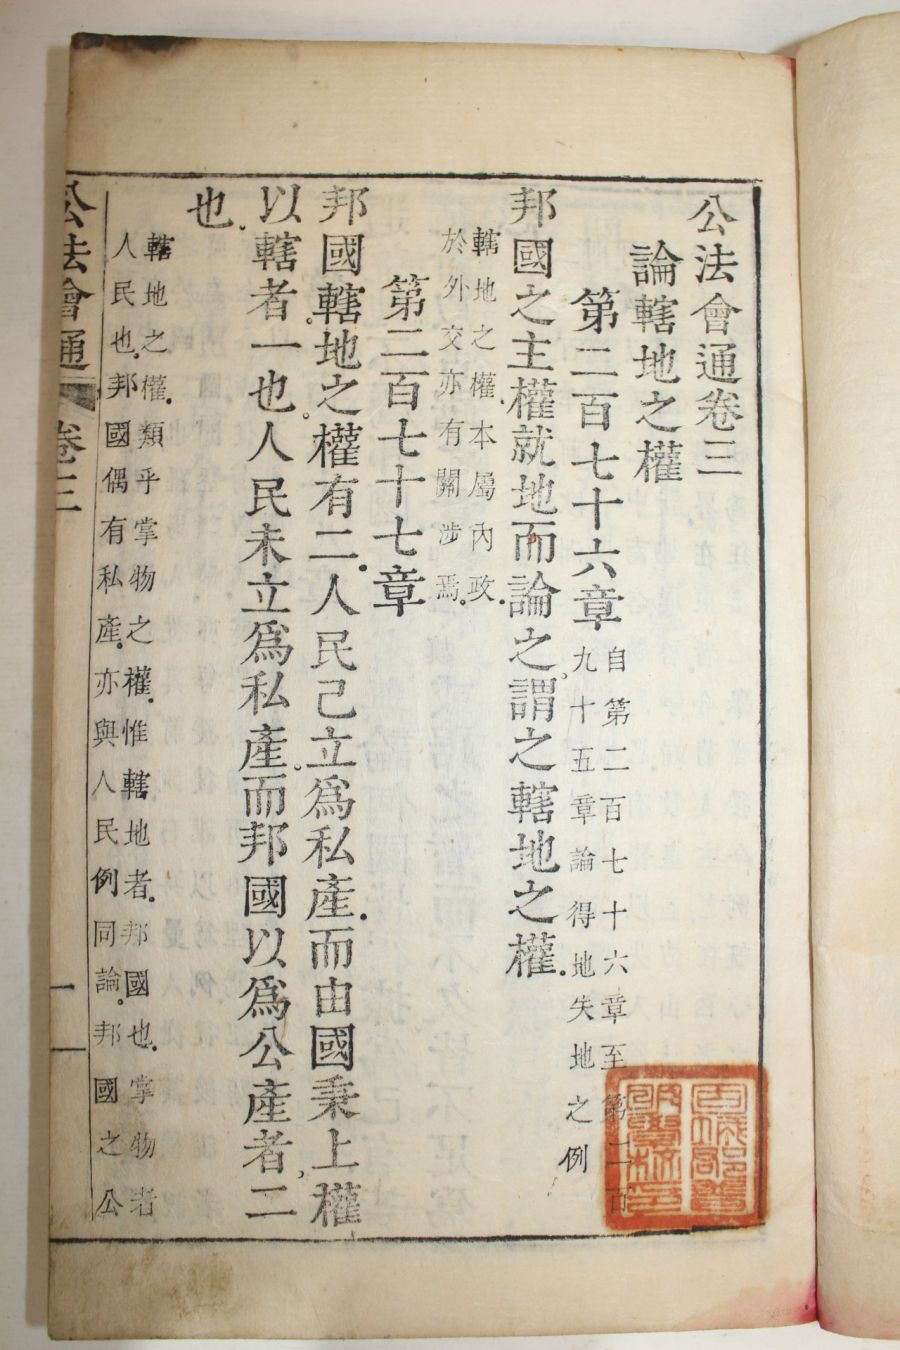 公法會通卷三
論轄地之權
第二百七十六章
自第二百七十六章至第二百
九十五章論得地失地之例
邦國之主權就地而論之謂之轄地之權
轄地之權本屬內政
於外交亦有關涉焉
第二百七十七章
邦國轄地之權有二人民己立爲私產而由國秉上權
以轄者一也人民未立爲私產而邦國以爲公產者二
也
轄地之權類乎掌物之權惟轄地者邦國也掌物者
人民也邦國偶有私產亦與人民例同論邦國之公
公法會通 卷三 一